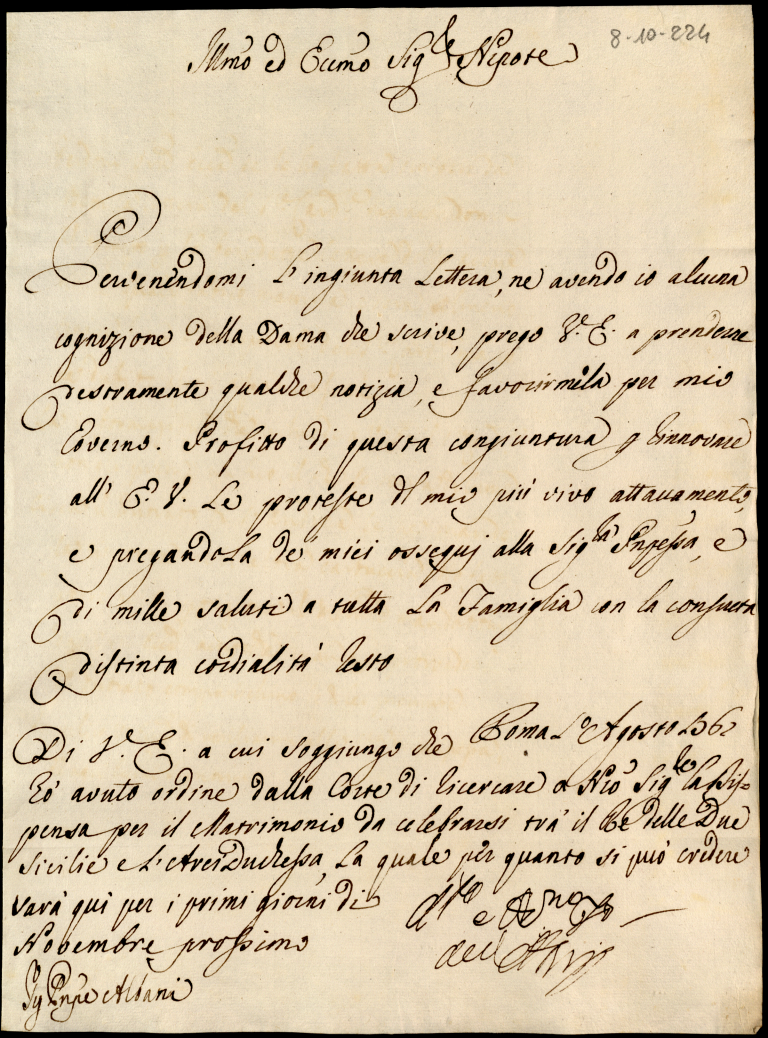 8-10-224
Illmo ed Eccmo Sigre Nipote
Pervenendomi l'ingiunta Lettera, ne avendo io alcuna
cognizione della Dama che scrive, prego V. E. a prendere
destramente qualche notizia, e favorirmela per mio
Governo. Profitto di questa congiuntura p rinnovare
all' E. V. Le proteste dl mio più vivo attaccamento,
e pregandoLa de' miei ossequj alla Sigra Pnpessa, e
di mille saluti a tutta La Famiglia con la consueta
distinta cordialità resto
Di V. E. a cui soggiungo che Roma Agosto
hò avuto ordine dalla Corte di ricercare a Nro Sigre la Dis-
pensa per il Matrimonio da celebrarsi trà il Rè delle Due
Sicilie e L'ArciDuchessa, La quale per quanto si può credere
sarà quì per i primi giorni di
Novembre prossimo
Sig Pnpe Albani